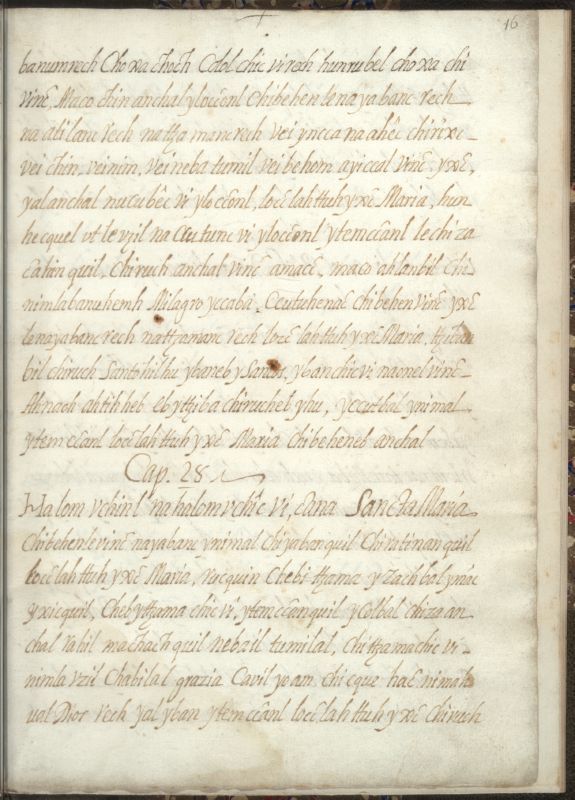 16
banumrech Choxa choch Colol chic virech hunrubel choxa chi
vinc, Maco chin anchal yloconl Chibehen lenayabanc rech
na alilanc rech nattza manc rech vei yncca na ahêc chirixi
vei chin, veinim, vei neba tumil vei behom ayiccal vinc yxc,
yalanchal nucubêc vi yloccônl, locc lahttuh yxc Maria, hun
hecquel vt le vzil na Ccutunc vi yloccônl ytemccânl lechiza
câhin quil, Chiruch anchal vinc amacc, maco ahlanbil Chi
nimla banuhemh Milagro yccaba. Ccutuhenac chibehen Vinc yxc
lenayabanc rech nattzamanc rech locc lahttuh yxc Maria, ttziban
bil chiruch Santo hilhu ybaneb y Santos, yban chic vi naonel vinc
Ahnach ahtih heb eb yttziba chirucheb yhu, yccutbal ynimal
ytemccanl locc lahttuh yxc Maria chibeheneb anchal
Cap. 28
Halom vchinl naholom vchîc vi, chna Sancta Maria
Chibehen levinc nayabanc ynimal chiyabanquil Chiratinanquil
locc lahttuh yxc Maria, racquin Chebi ttzama y Zachbal ymac
yxicquil, Cheb yttzama chic vi, ytemccânquil yColbal chiza an
chal rahil machachquil nebail tumilal, Chittzama chic vi
nimla vzil Chabilal grazia Cavil yoam chicque hac nimah
ual Dios rech yal yban ytemccânl locc lahttuh yxc Chiruch